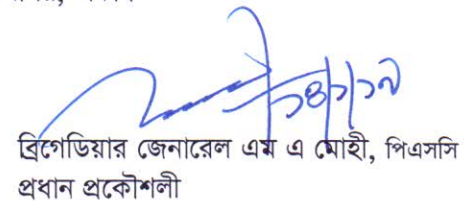 ২৪/১/১৯
ব্রিগেডিয়ার জেনারেল এম এ মোহী, পিএসসি
প্রধান প্রকৌশলী